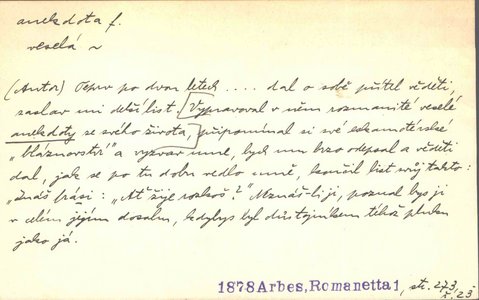 anekdota f.
veselá ~
(Autor) Teprv po dvou letech .... dal o sobě přítel věděti,
zaslav mi delší list. Vypravoval v něm rozmanité veselé
anekdoty ze svého života, připomínal si své eskamotérské
"bláznovství" a vyzval mne, bych mu brzo odepsal a věděti
dal, jak se po tu dobu vedlo mně, končil list svůj takto:
"Znáš frási: "Ať žije rozkoš"? Neznáš-li ji, poznal bys ji
v celém jejím dosahu, kdybys byl důstojníkem téhož pluku
jako já.
1878 Arbes, Romanetta 1, str. 273,
ř. 23